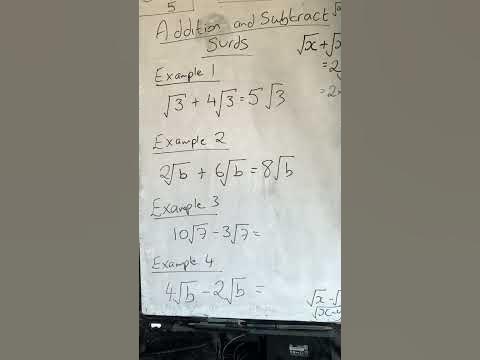 5
Addition and Subtract
Surds
Example 1
√3 + 4√3 = 5√3
Example 2
2√b + 6√b = 8√b
Example 3
10√7 - 3√7 =
Example 4
4√b - 2√b =
√x + √x
= 2
= 2
√x - √